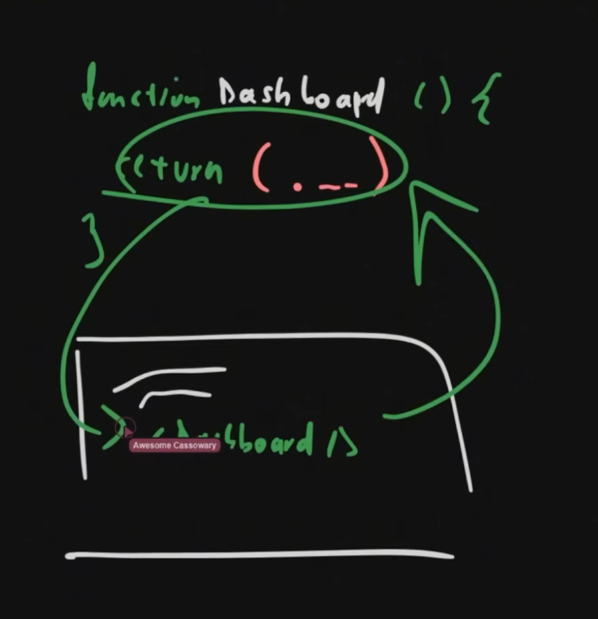 function Dashboard () {
return (. __)
}
<Dashboard />
Awesome Cassowary